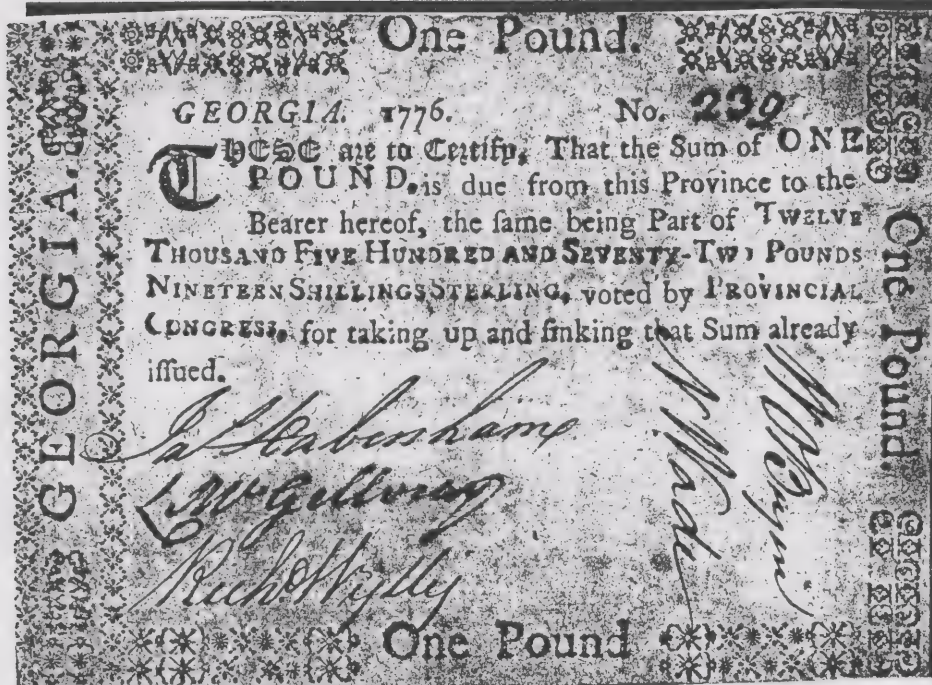 One Pound.
GEORGIA. 1776. No. 239
THESE are to Certify, That the Sum of ONE
POUND, is due from this Province to the
Bearer hereof, the ſame being Part of TWELVE
THOUSAND FIVE HUNDRED AND SEVENTY-TWO POUNDS
NINETEEN SHILLINGS STERLING, voted by PROVINCIAL
CONGRESS, for taking up and ſinking that Sum already
iſſued.
Jas Habersham
L McGillivray
Richd Wylly
N Wade
One Pound
GEORGIA.
One Pound.